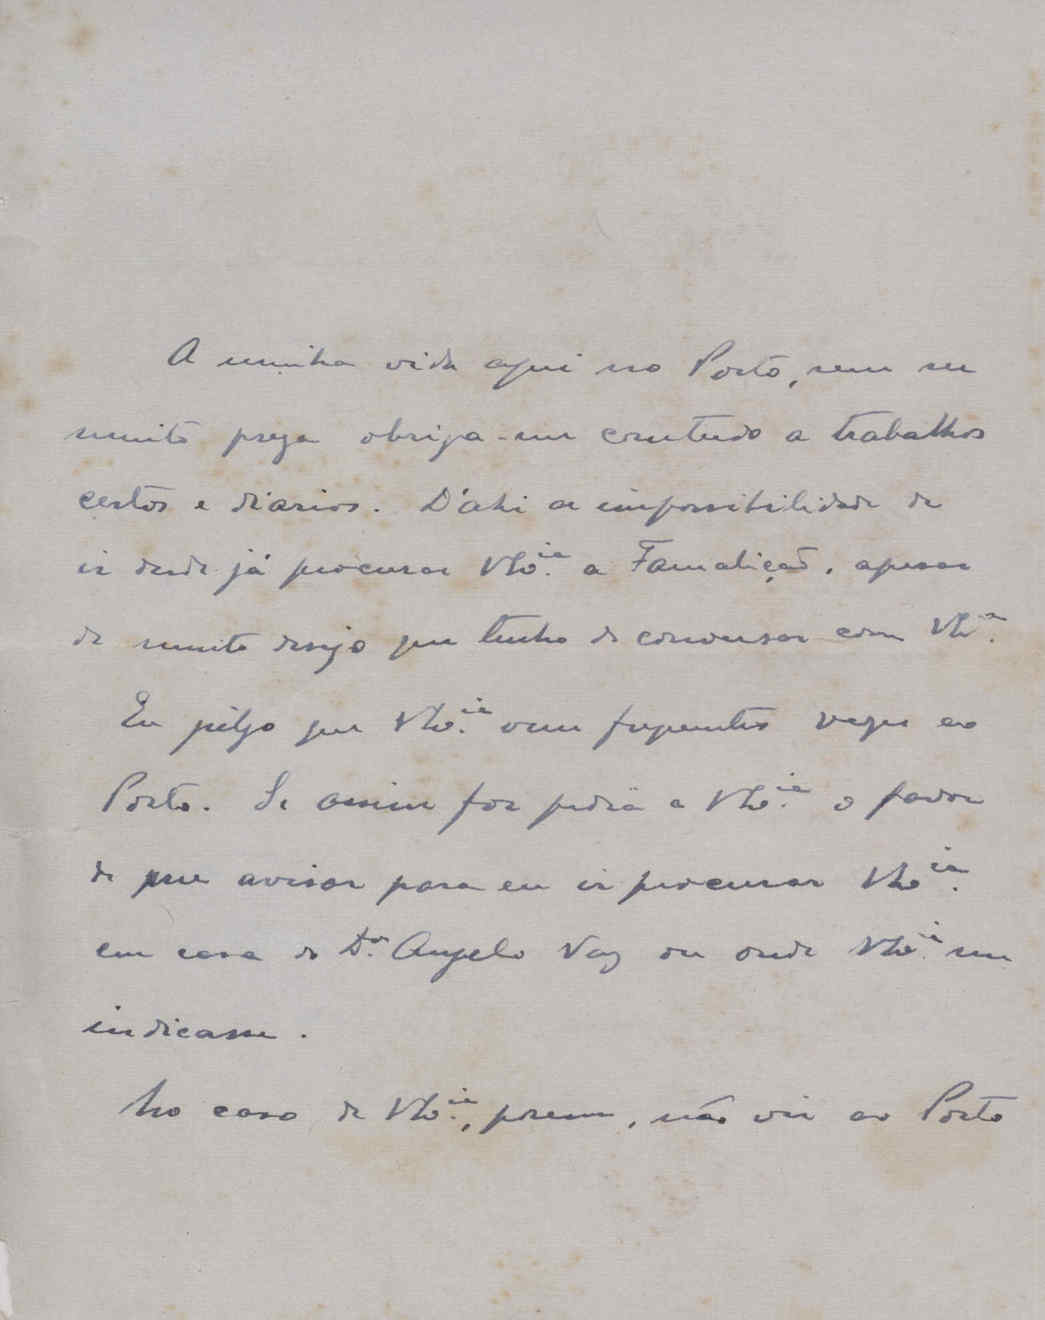 A minha vida aqui no Porto, sem ser
muito presa obriga-me comtudo a trabalhos
certos e diarios. D'ahi a impossibilidade de
ir desde já procurar V. Ex.cia a Famalicão, apesar
do muito desejo que tenho de conversar com V. Ex.cia
Eu julgo que V. Ex.cia vem frequentes vezes ao
Porto. Se assim for pedia a V. Ex.cia o favor
de me avisar para eu ir procurar V. Ex.cia
em casa do Dr. Angelo Vaz ou onde V. Ex.cia me
indicasse.
No caso de V. Ex.cia, porem, não vir ao Porto